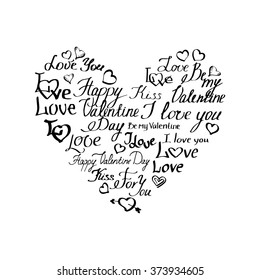 Love You
Love
Be my
I Love
Happy
Kiss
Love
Valentine
Valentine
Love
I love you
Day
Be my Valentine
I
Love
I love you
Happy Valentine Day
Love
Kiss
For
Love
You
www.shutterstock.com · 373934605